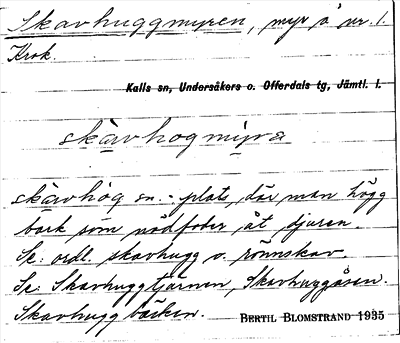 Skavhuggmyren, myr o nr. 1.
Krok.
Kalls sn, Undersåkers o. Offerdals tg, Jämtl. l.
skàvhogmyra
skàvhòg sn. - plats, där man högg
bark som nödfoder åt djuren.
Se: ordl. skavhugg o. rönnskav.
Se: Skavhuggtjärnen, Skavhuggåsen.
Skavhuggbäcken.
BERTIL BLOMSTRAND 1935